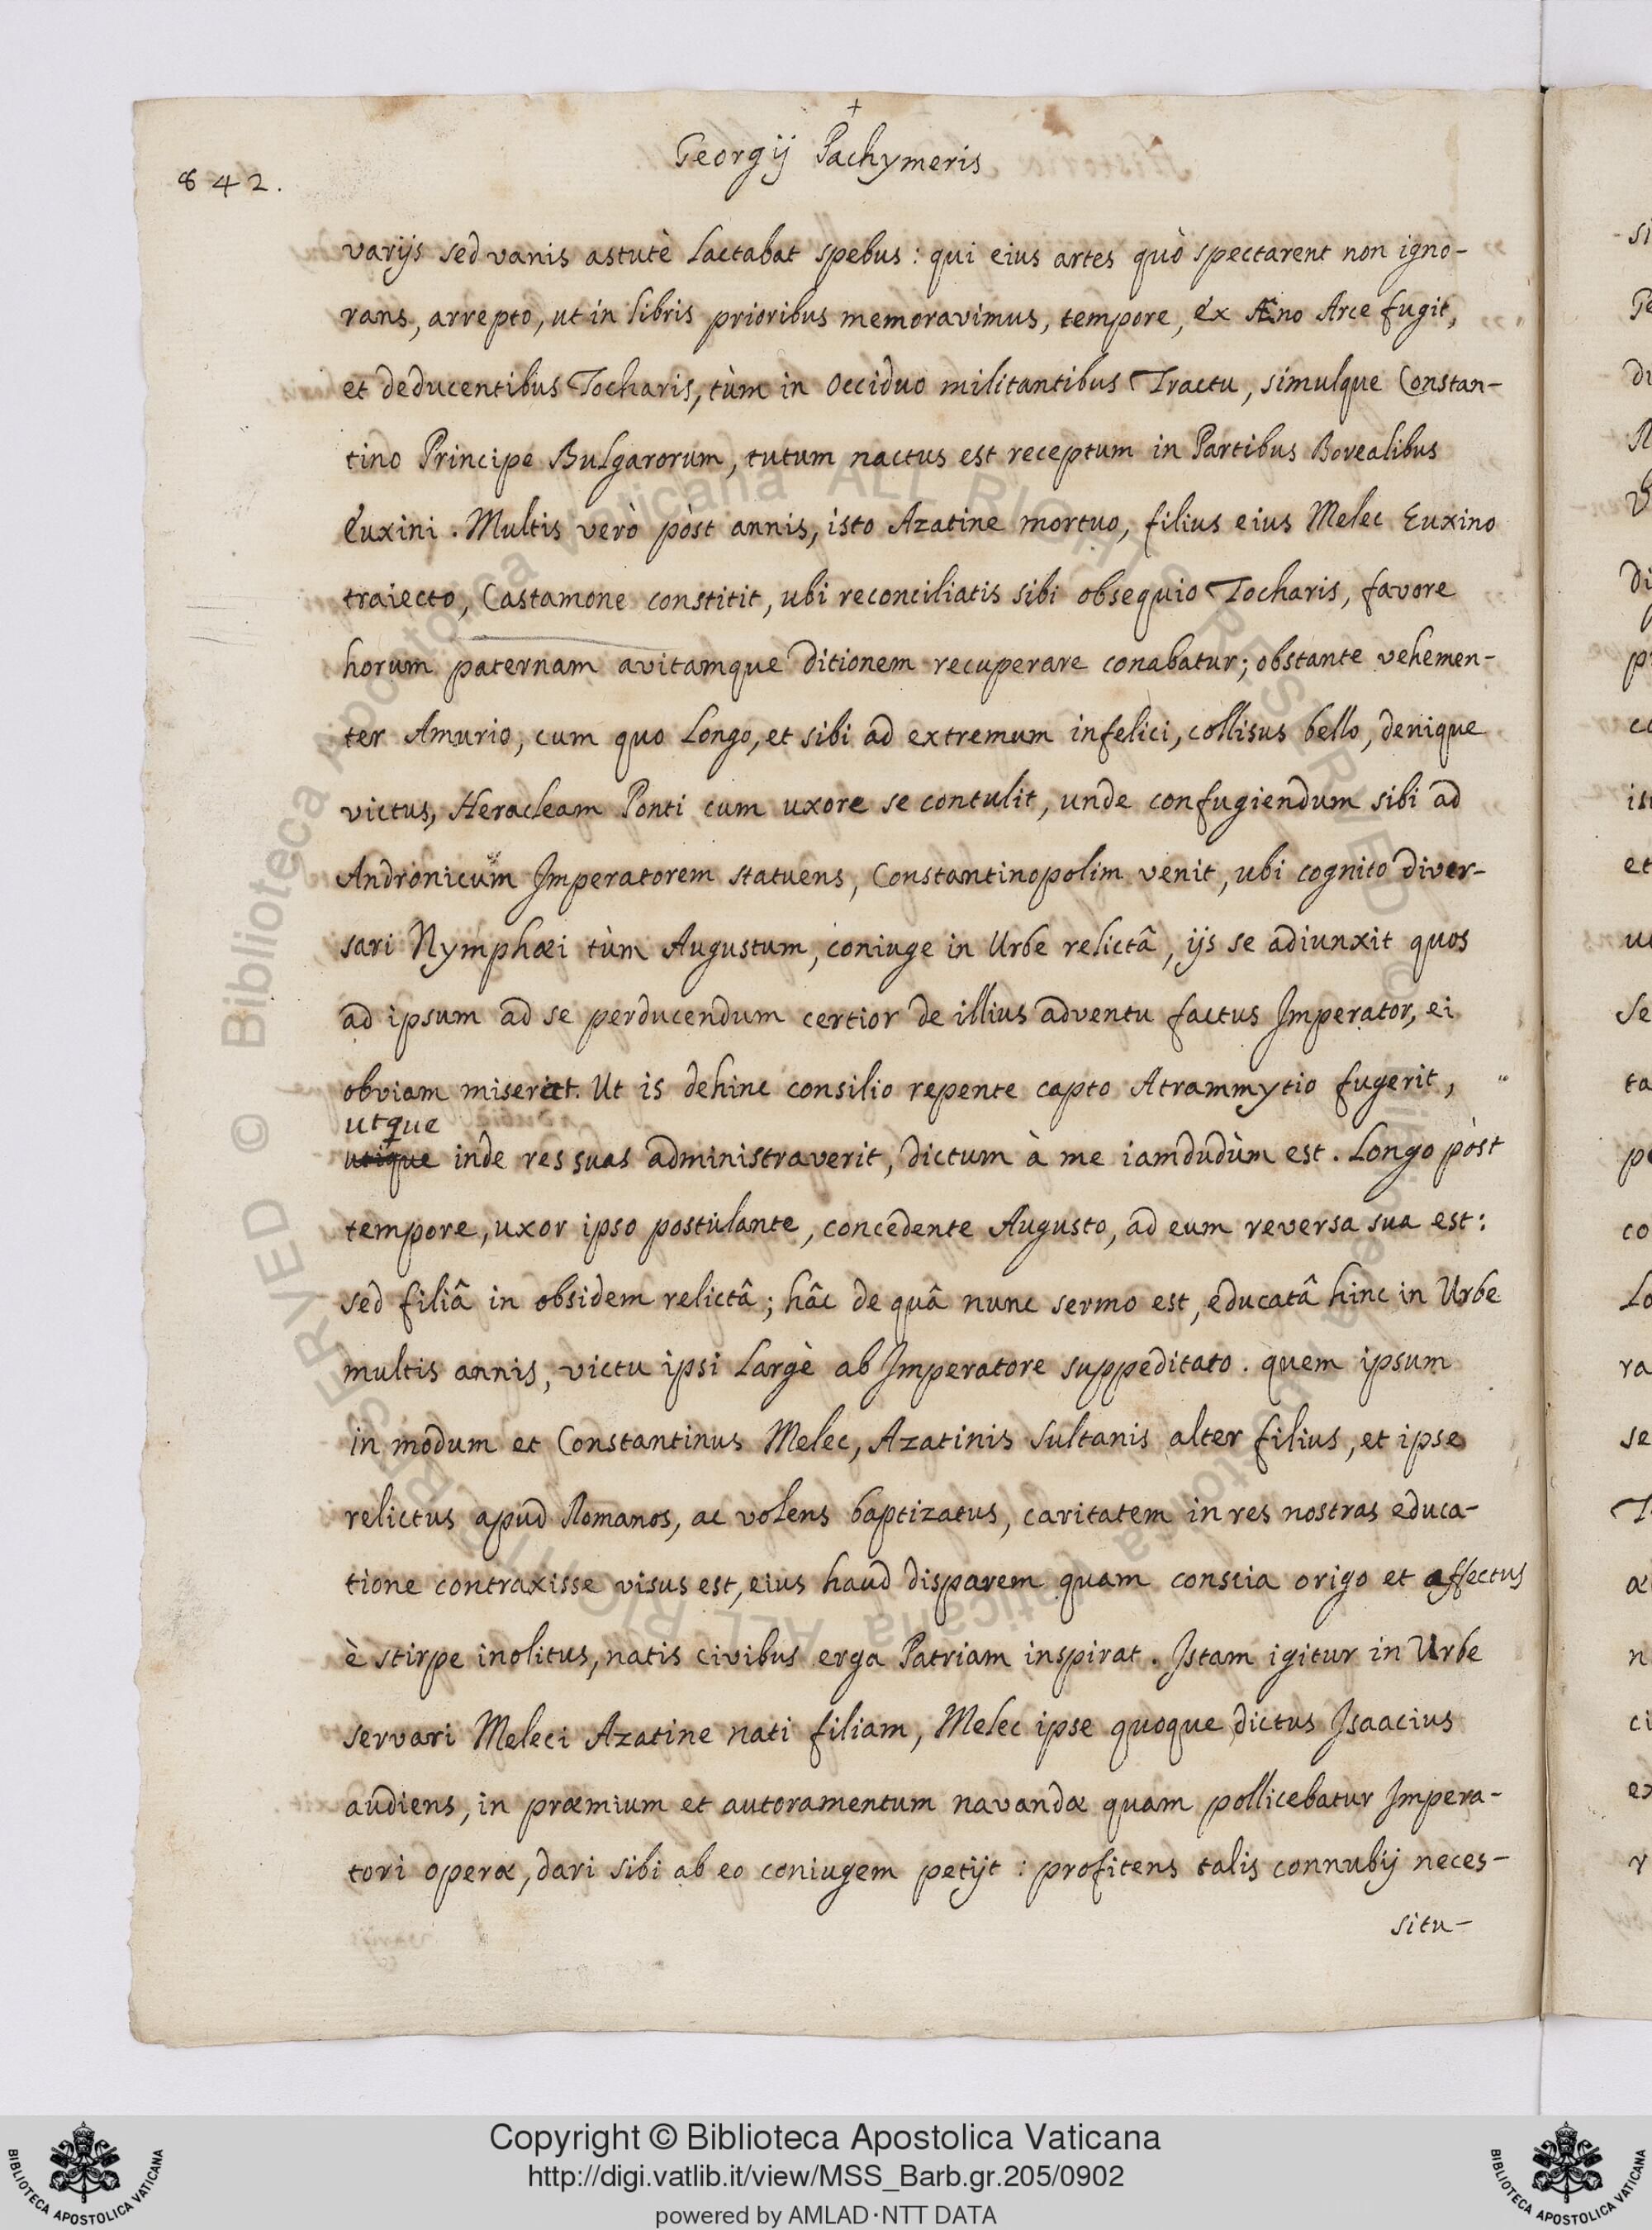 +
Georgij Pachymeris
842.
varijs sed vanis astutè lactabat spebus: qui eius artes quò spectarent non igno-
rans, arrepto, ut in libris prioribus memoravimus, tempore, ex Æno Arce fugit,
et deducentibus Tocharis, tùm in Occiduo militantibus Tractu, simulque Constan-
tino Principe Bulgarorum, tutum nactus est receptum in Partibus Borealibus
Euxini. Multis verò pòst annis, isto Azatine mortuo, filius eius Melec Euxino
traiecto, Castamone constitit, ubi reconciliatis sibi obsequio Tocharis, favore
horum paternam avitamque ditionem recuperare conabatur; obstante vehemen-
ter Amurio, cum quo longo, et sibi ad extremum infelici, collisus bello, denique
victus, Heracleam Ponti cum uxore se contulit, unde confugiendum sibi ad
Andronicum Imperatorem statuens, Constantinopolim venit, ubi cognito diver-
sari Nymphæi tùm Augustum, coniuge in Urbe relictâ, ijs se adiunxit quos
ad ipsum ad se perducendum certior de illius adventu factus Imperator, ei
obviam miserat. Ut is dehinc consilio repente capto Atrammytio fugerit,
utque
utique inde res suas administraverit, dictum à me iamdudùm est. Longo pòst
tempore, uxor ipso postulante, concedente Augusto, ad eum reversa sua est:
sed filiâ in obsidem relictâ; hâc de quâ nunc sermo est, educatâ hinc in Urbe
multis annis, victu ipsi largè ab Imperatore suppeditato. quem ipsum
in modum et Constantinus Melec, Azatinis Sultanis alter filius, et ipse
relictus apud Romanos, ac volens baptizatus, caritatem in res nostras educa-
tione contraxisse visus est, eius haud disparem quam conscia origo et affectus
è stirpe inolitus, natis civibus erga Patriam inspirat. Istam igitur in Urbe
servari Meleci Azatine nati filiam, Melec ipse quoque dictus Isaacius
audiens, in præmium et autoramentum navandæ quam pollicebatur Impera-
tori operæ, dari sibi ab eo coniugem petijt: profitens talis connubij neces-
situ-
Copyright © Biblioteca Apostolica Vaticana
http://digi.vatlib.it/view/MSS_Barb.gr.205/0902
powered by AMLAD·NTT DATA
BIBLIOTECA APOSTOLICA VATICANA
BIBLIOTECA APOSTOLICA VATICANA
© Biblioteca Apostolica Vaticana ALL RIGHTS RESERVED
© Biblioteca Apostolica Vaticana ALL RIGHTS RESERVED